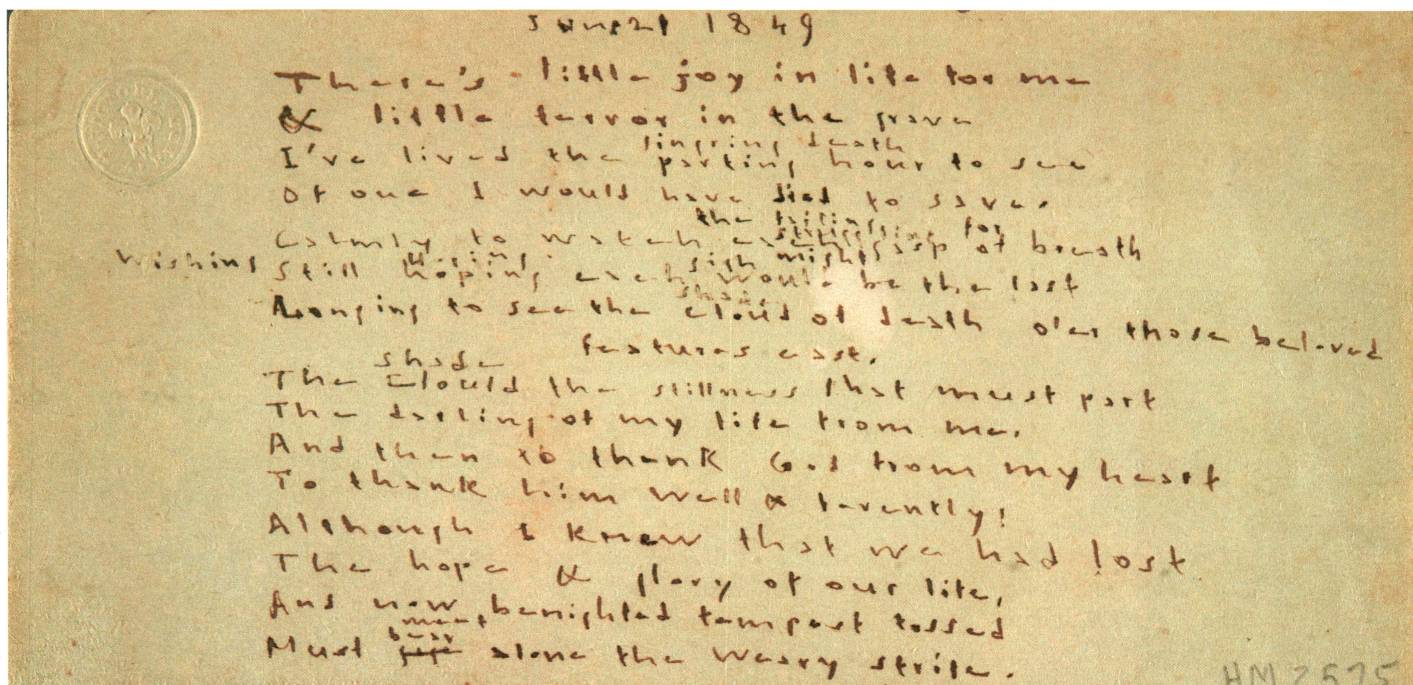 June 21 1849
There's little joy in life for me
& little terror in the grave
lingring death
I've lived the parting hour to see
Of one I would have died to save.
the failing for
struggling
Calmly to watch each gasp of breath
wishing Still hoping each would be the last
sigh might
shade
Longing to see the cloud of death o'er those beloved
features cast.
shade
The Cloud the stillness that must part
The darling of my life from me.
And then to thank God from my heart
To thank him well & fervently!
Although I knew that we had lost
The hope & glory of our life,
And now, benighted tempest tossed
meet
bear
Must alone the weary strife.
HM 2575